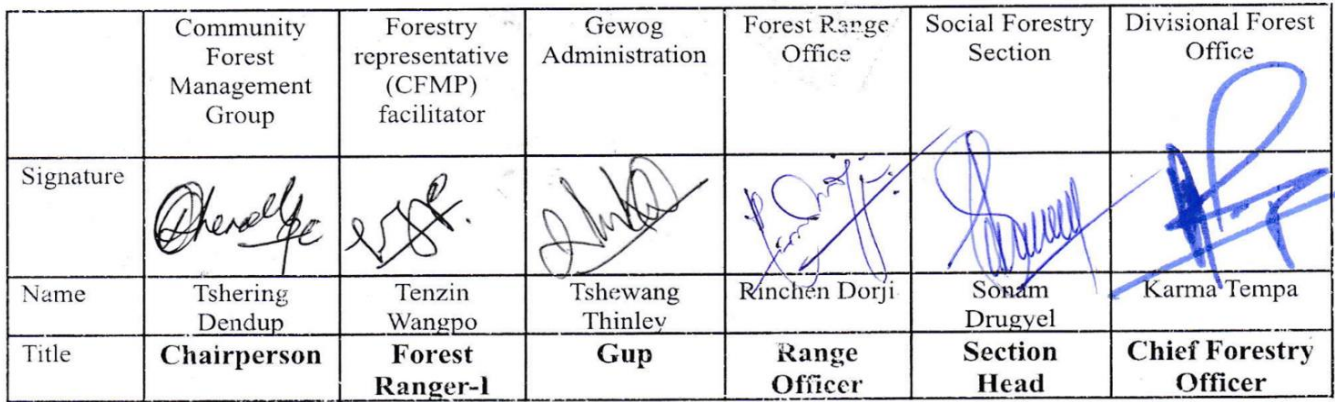 Community Forest Management Group
Forestry representative (CFMP) facilitator
Gewog Administration
Forest Range Office
Social Forestry Section
Divisional Forest Office
Signature
Name
Tshering Dendup
Tenzin Wangpo
Tshewang Thinley
Rinchen Dorji
Sonam Drugyel
Karma Tempa
Title
Chairperson
Forest Ranger-I
Gup
Range Officer
Section Head
Chief Forestry Officer